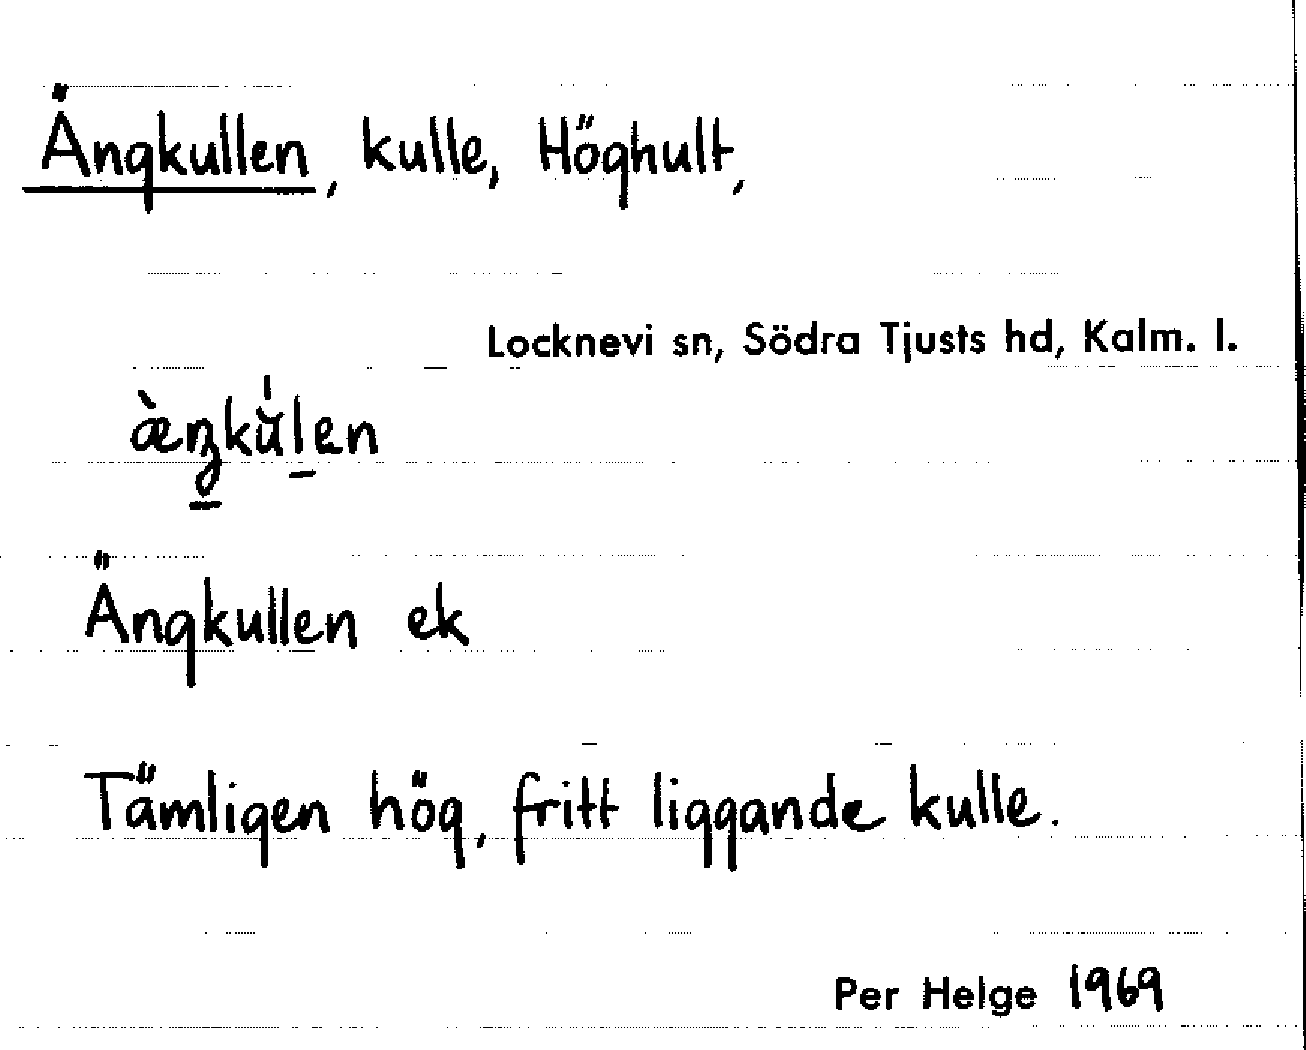 Ängkullen, kulle, Höghult,
Locknevi sn, Södra Tjusts hd, Kalm. l.
Ängkullen ek
Tämligen hög, fritt liggande kulle.
Per Helge 1969